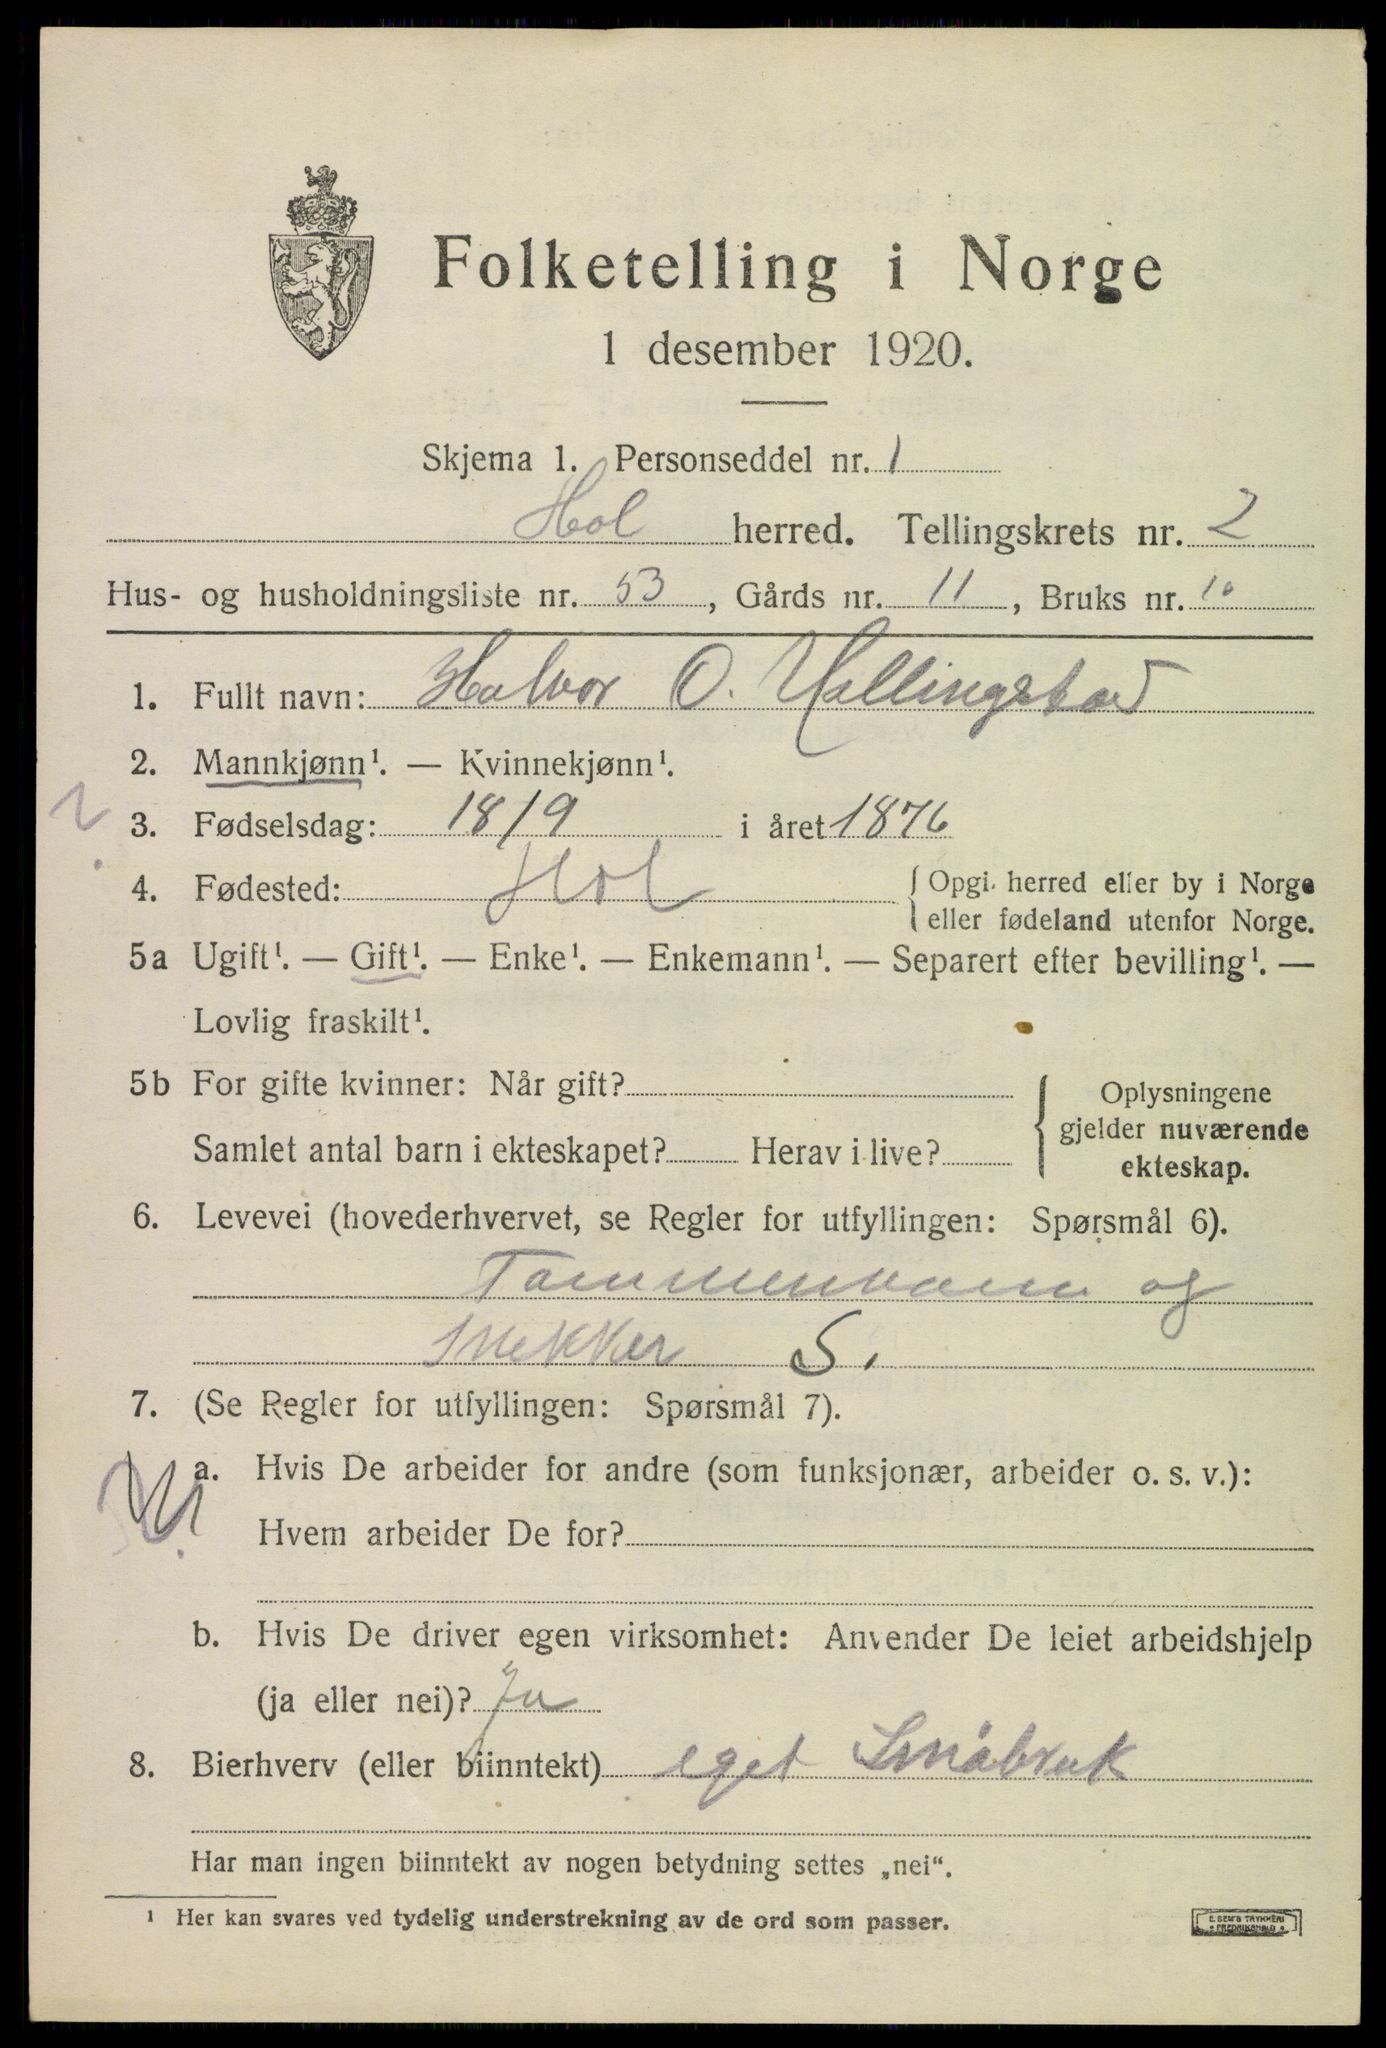 Folketelling i Norge
1 desember 1920.
Skjema 1. Personseddel nr. 1
Hol herred. Tellingskrets nr. 2
Hus- og husholdningsliste nr. 53, Gårds nr. 11, Bruks nr. 10
1. Fullt navn: Halvor O. Hallingstad
2. Mannkjønn¹. — Kvinnekjønn¹.
3. Fødselsdag: 18/9 i året 1876
4. Fødested: Hol { Opgi herred eller by i Norge
eller fødeland utenfor Norge.
5a Ugift¹. — Gift¹. — Enke¹. — Enkemann¹. — Separert efter bevilling¹. —
Lovlig fraskilt¹.
5b For gifte kvinner: Når gift?
Samlet antal barn i ekteskapet? Herav i live?
Oplysningene
gjelder nuværende
ekteskap.
6. Levevei (hovederhvervet, se Regler for utfyllingen: Spørsmål 6).
Tømmermann og
Snekker S.
7. (Se Regler for utfyllingen: Spørsmål 7).
a. Hvis De arbeider for andre (som funksjonær, arbeider o. s. v.):
Hvem arbeider De for?
b. Hvis De driver egen virksomhet: Anvender De leiet arbeidshjelp
(ja eller nei)? Ja
8. Bierhverv (eller biinntekt) eget Småbruk
Har man ingen biinntekt av nogen betydning settes „nei“.
¹ Her kan svares ved tydelig understrekning av de ord som passer.
E. SEM'S TRYKKERI
FREDRIKSHALD